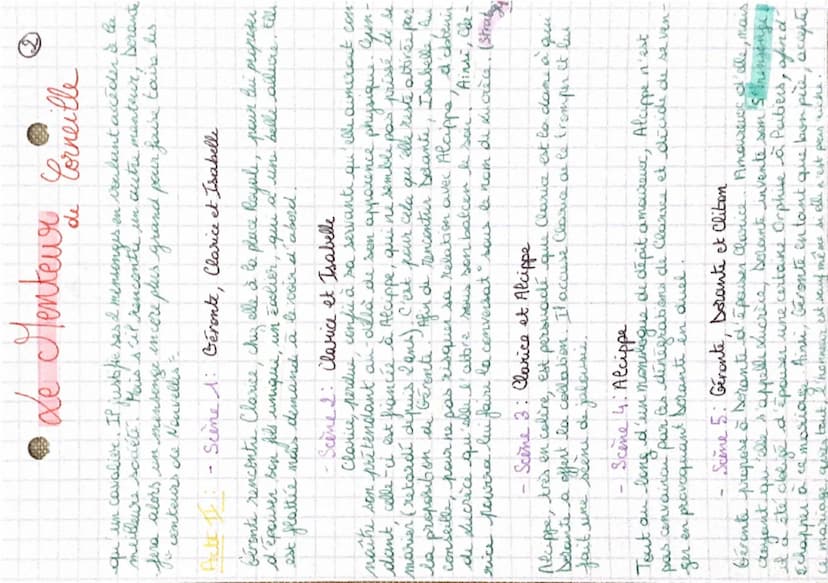 2
Le Menteur
de Corneille
qu'un cavalier. Il justifie ses mensonges en voulant accéder à la
meilleure société. Mais s'il rencontre un autre menteur, Dorante
fera alors un mensonge encore plus grand pour faire taire les
"conteurs de Nouvelles".
Acte II : - Scène 1 : Géronte, Clarice et Isabelle
Géronte rencontre Clarice, chez elle à la place Royale, pour lui proposer
d'épouser son fils unique, un écolier, qui a une belle allure. Elle
est flattée mais demande à le voir d'abord.
- Scène 2 : Clarice et Isabelle
Clarice, perdue, confie à sa servante qu'elle aimerait con-
naître son prétendant au-delà de son apparence physique. Cepen-
dant, celle-ci est fiancée à Alcippe, qui ne semble pas pressé de se
marier (retardé depuis 2 ans). C'est pour cela qu'elle reste attirée par
la proposition de Géronte. Afin de rencontrer Dorante, Isabelle lui
conseille, pour ne pas risquer sa relation avec Alcippe, d'obtenir
de Lucrèce qu'elle l'attire sous son balcon le soir. Ainsi, Cla-
rice pourra lui faire la conversat° sous le nom de Lucrèce. (Stratagè
- Scène 3 : Clarice et Alcippe
Alcippe, très en colère, est persuadé que Clarice est la dame à qui
Dorante a offert la collation. Il accuse Clarice de le tromper et lui
fait une scène de jalousie.
- Scène 4 : Alcippe
Tout au long d'un monologue de dépit amoureux, Alcippe n'est
pas convaincu par les dénégations de Clarice et décide de se ven-
ger en provoquant Dorante en duel.
- Scène 5 : Géronte, Dorante et Cliton
Géronte propose à Dorante d'épouser Clarice. Amoureux d'elle, mais
croyant qu'elle s'appelle Lucrèce, Dorante invente son 5e mensonge :
il a été obligé d'épouser une certaine Orphise à Poitiers, pour
échapper à ce mariage. Ainsi, Géronte en tant que bon père, accepte
ce mariage avec tout l'honneur, et veut même si elle n'est pas riche.